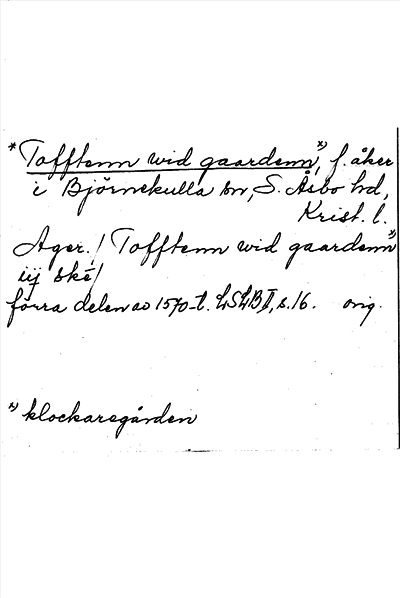 * Tofftenn wid gaardenn *), f. åker
i Björnekulla sn, S. Åsbo hd,
Krist. l.
Ager. / Tofftenn wid gaardenn *)
iij ské /
förra delen av 1570-t. LSLB II, s. 16. orig.
*) klockaregården